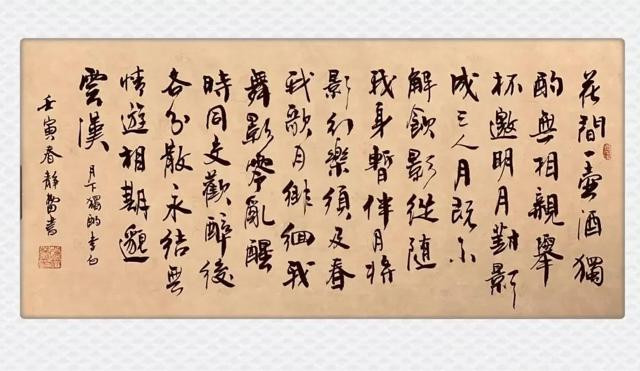 花間一壺酒獨
酌無相親舉
杯邀明月對影
成三人月既不
解飲影從隨
我身暫伴月將
影行樂須及春
我歌月徘徊我
舞影零亂醒
時同交歡醉後
各分散永結無
情遊相期邈
雲漢
月下獨酌李白
壬寅春靜書